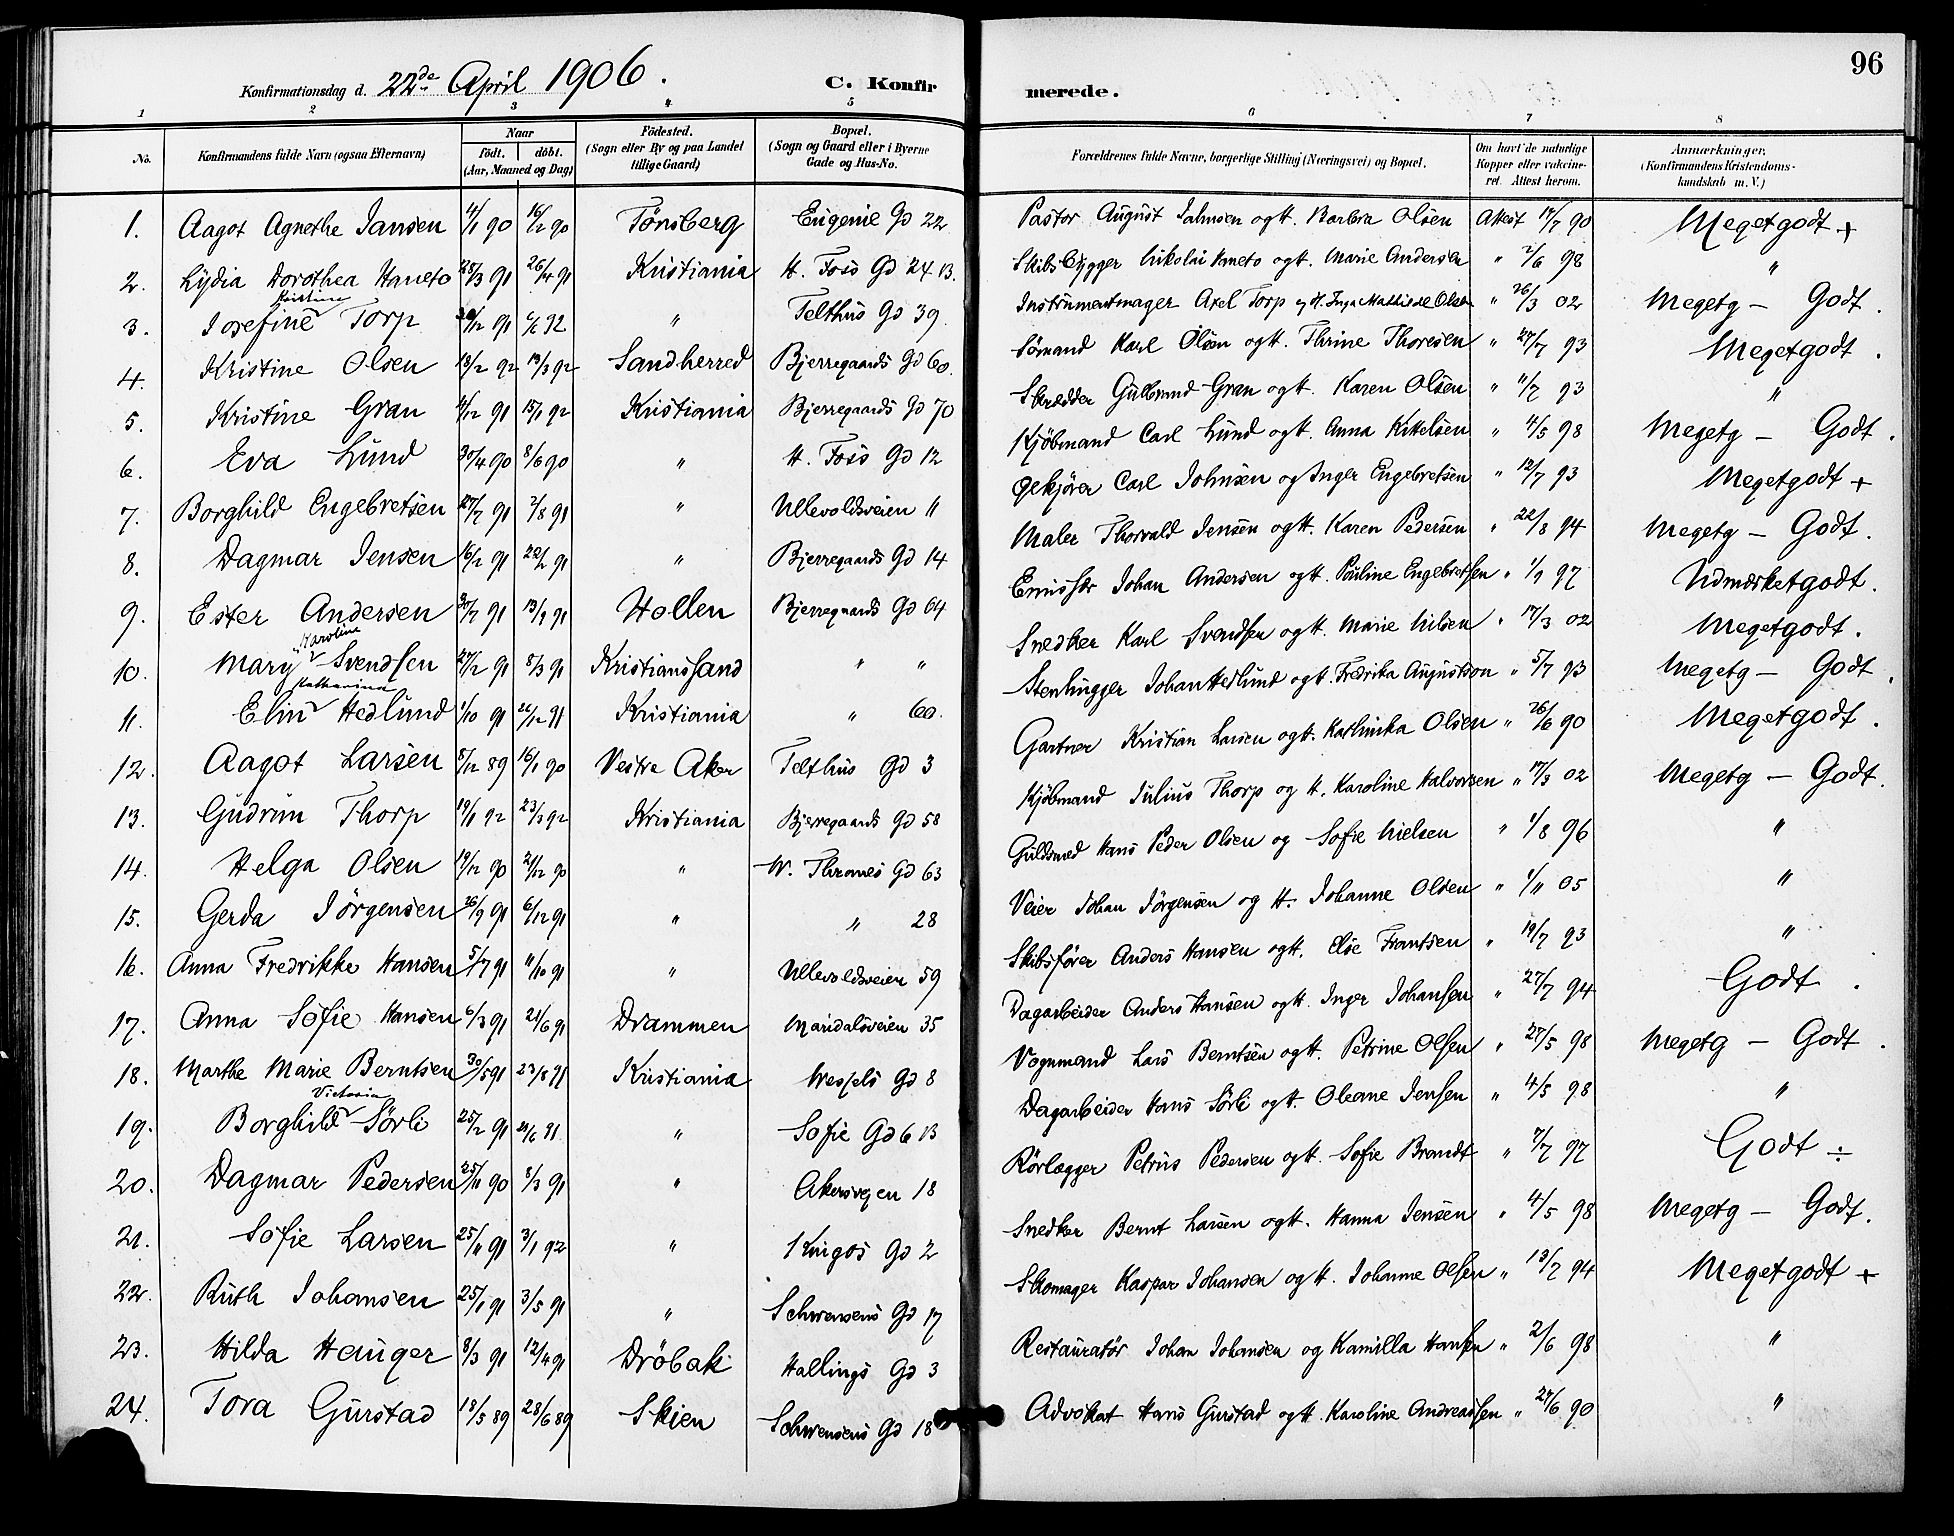 96
Konfirmationsdag d. 22de April 1906. C. Konfirmerede.
1 2 3 4 5 6 7 8
No. Konfirmandens fulde Navn (ogsaa Efternavn) Naar født. døbt. (Aar, Maaned og Dag) Fødested. (Sogn eller By og paa Landet tillige Gaard) Bopæl. (Sogn og Gaard eller i Byerne Gade og Hus-No. Forældrenes fulde Navne, borgerlige Stilling (Næringsvei) og Bopæl. Om havt de naturlige Kopper eller vaccineret. Attest herom. Anmærkninger. (Konfirmandens Kristendomskundskab m. V.)
1. Aagot Agnethe Jansen 4/1 90 16/2 90 Tönsberg Eugenie Gd 22 Pastor August Jahnsen og H. Barbra Olsen Attest 17/7 90 Megetgodt +
2. Lydia Dorothea Haneto 28/3 91 26/4 91 Kristiania H. Foss Gd 24 B. Skibsbygger Nikolai Haneto og H. Marie Andersen " 2/6 98 "
3. Josefine Kristine Torp 12 91 92 " Telthus Gd 39 Instrumentmager Axel Torp og H. Inga Mathilde Olsen " 26/3 02 Megetg - Godt.
4. Kristine Olsen 18/2 92 13/3 92 Sandherred Bjerregaards Gd 60. Sömand Karl Olsen og H. Thrine Thoresen " 27/7 93 Megetgodt.
5. Kristine Gran 4/12 91 15/1 92 Kristiania Bjerregaards Gd 70 Skrædder Gulbrand Gran og H. Karen Olsen " 11/7 93 "
6. Eva Lund 30/4 90 8/6 90 " H. Foss Gd 12 Kjøbmand Carl Lund og H. Anna Kittelsen " 4/5 98 Megetg - Godt.
7. Borghild Engebretsen 27/7 91 2/8 91 " Ullevoldsveien 11 Ølkjører Carl Johnsen og Inger Engebretsen " 12/7 93 Megetgodt +
8. Dagmar Jensen 16/2 91 22/2 91 " Bjerregaards Gd 14 Maler Thorvald Jensen og H. Karen Pedersen " 22/8 94 Megetg - Godt.
9. Ester Andersen 30/7 91 13/9 91 Hollen Bjerregaards Gd 64 Emissær Johan Andersen og H. Pauline Engebretsen " 1/9 97 Udmærketgodt.
10. Mary Karoline Svendsen 27/12 91 8/3 91 Kristianssand " " Snedker Karl Svendsen og H. Marie Nilsen " 17/3 02 Megetgodt.
11. Elin Katharina Hedlund 1/10 91 26/12 91 Kristiania " 60. Stenhugger Johan Hedlund og H. Fredrika Augustson " 5/7 93 Megetg - Godt.
12. Aagot Larsen 8/12 89 16/1 90 Vestre Aker Telthus Gd 3 Gartner Kristian Larsen og H. Kathinka Olsen " 26/6 90 Megetgodt.
13. Gudrun Thorp 19/1 92 23/3 92 Kristiania Bjerregaards Gd 58 Kjøbmand Julius Thorp og H. Karoline Halvorsen " 17/3 02 Megetg - Godt.
14. Helga Olsen 19/12 90 21/12 90 " W. Thranes Gd 63 Guldsmed Hans Peder Olsen og Sofie Nielsen " 1/8 96 "
15. Gerda Jörgensen 26/9 91 6/12 91 " " 28 Veier Johan Jörgensen og H. Johanne Olsen " 1/11 05 "
16. Anna Fredrikke Hansen 5/7 91 11/10 91 " Ullevoldsveien 59 Skibsfører Anders Hansen og H. Else Frantsen " 19/7 93 "
17. Anna Sofie Hansen 6/3 91 21/6 91 Drammen Maridalsveien 35 Dagarbeider Anders Hansen og H. Inger Johansen " 27/7 94 Godt.
18. Marthe Marie Berntsen 30/5 91 23/8 91 Kristiania Wessels Gd 8 Vognmand Lars Berntsen og H. Petrine Olsen " 27/5 98 Megetg - Godt.
19. Borghild Victoria Sörli 25/2 91 21/6 91 " Sofie Gd 6 B Dagarbeider Hans Sörli og H. Oleane Jensen " 4/5 98 "
20. Dagmar Pedersen 25/11 90 8/3 91 " Akersvejen 18 Rörlægger Petrus Pedersen og H. Sofie Brandt " 7/7 97 Godt ÷
21. Sofie Larsen 25/11 91 3/1 92 " Kingos Gd 2 Snedker Bernt Larsen og H. Hanna Jensen " 4/5 98 Megetg - Godt.
22. Ruth Johansen 25/1 91 3/5 91 " Schwensens Gd 17 Skomager Kaspar Johansen og H. Johanne Olsen " 13/7 94 Megetgodt +
23. Hilda Hauger 8/3 91 12/4 91 Dröbak Hallings Gd 3 Restauratör Johan Johansen og Kamilla Hansen " 2/6 98 "
24. Tora Gurstad 18/5 89 28/6 89 Skien Schwensens Gd 18 Advokat Hans Gurstad og H. Karoline Andreassen " 27/6 90 "